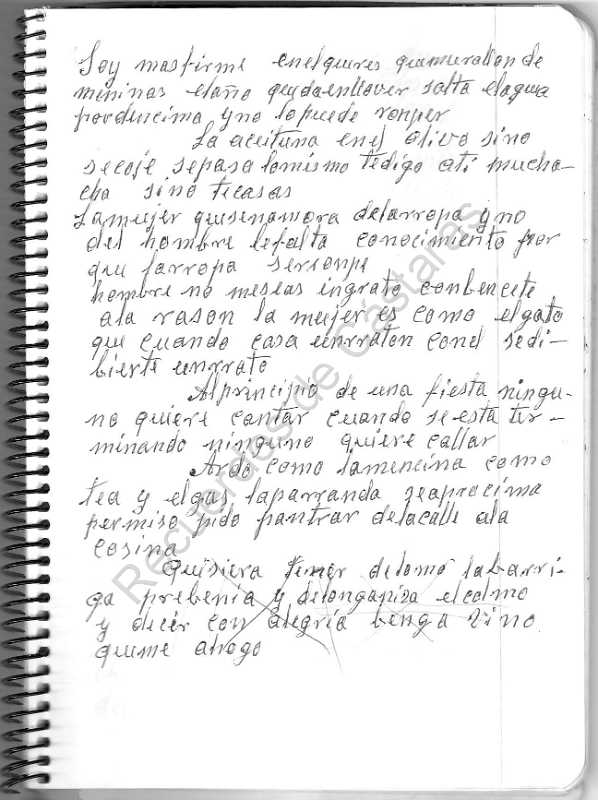 Soy mas firme enelquerer quemurallon de
meninas elaño queda enllover salta elagua
pordencima yno lopuede ronper
La aceituna enel olivo sino
secoje sepasa lomismo tedigo ati mucha-
cha sino tecasas
Lamujer quesenamora delarropa yno
del hombre lefalta conocimiento por
que larropa serronpe
hombre no meseas ingrato conbencete
ala rason la mujer es como elgato
que cuando casa unrraton conel sedi-
bierte unrrato
Alprincipio de una fiesta ningu-
no quiere cantar cuando seesta ter-
minando ninguno quiere callar
Ardo como lamencina como
tea y elgas laparranda seaprocima
permiso pido pantrar delacalle ala
cosina
Quisiera tener delomo labarri-
ga prebenia y delonganisa elcolmo
y decir con alegria benga vino
queme ahogo
Recuerdos de Cástaras